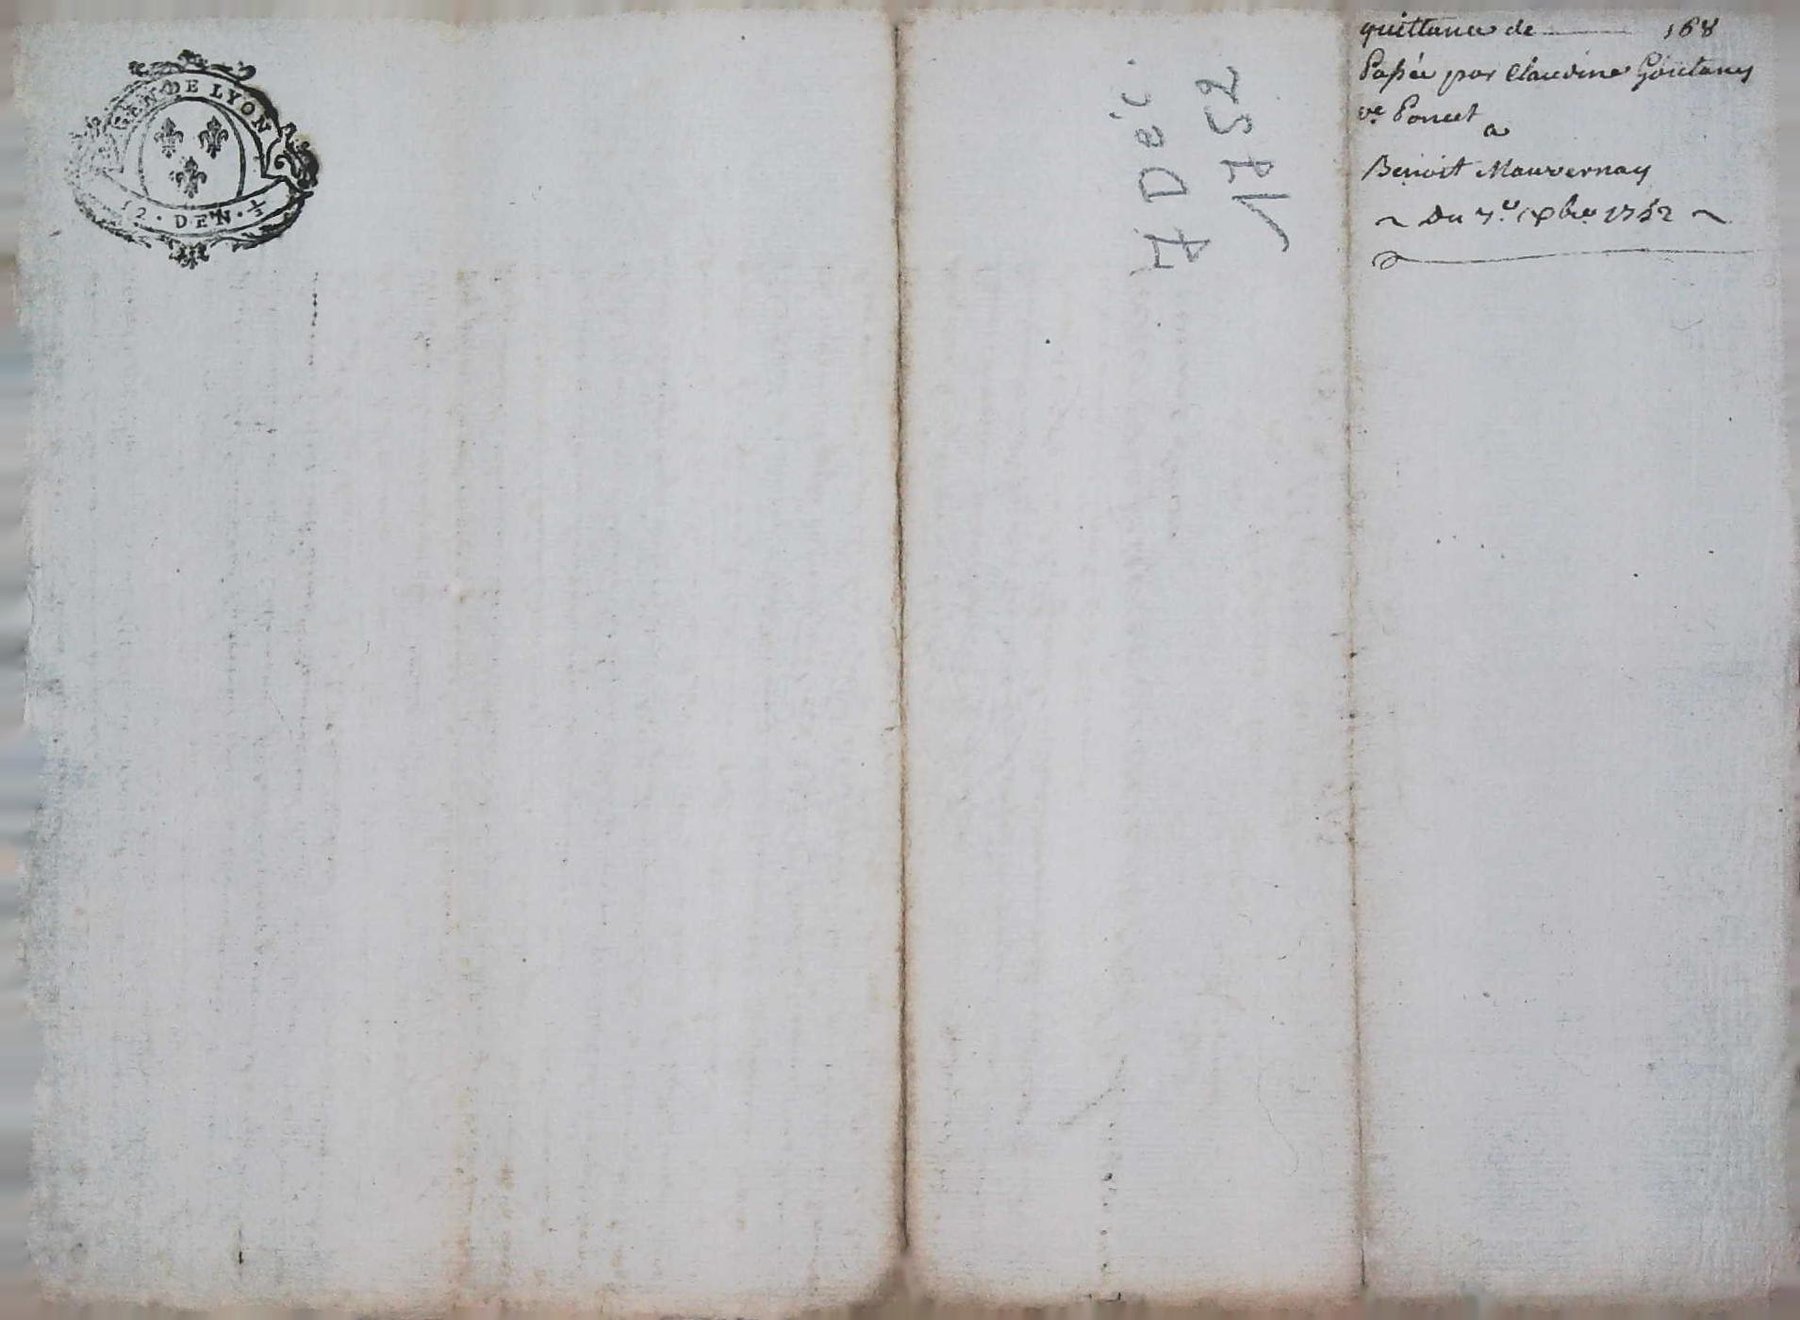 GEN DE LYON
12 · DEN · ½
7 Déc.
1752
quittance de ——— 168
Passée par Claudine Goutany
ve Poncet
a
Benoist Mauvernay
~ Du 7.e xbre 1752 ~